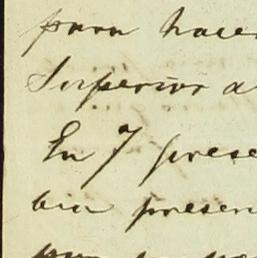 para hacer
Superior a
En 7 prese
bia presen